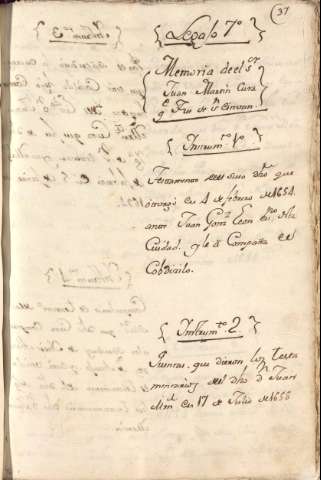 37
Legajo 7º
Memoria de el Sr
Juan Martin Cura
q Fue de
Instrumto 1º
Testamento del suso dho que
otorgó en 4 de febrero de 1654
ante Juan Gonz Leon
Ciudad, y le Compaña el
Cobdicilo.
Instrumto 2.
Quentas, que dieron los testa
mentarios del dho Dn Juan
Min en 17 de Julio de 1656